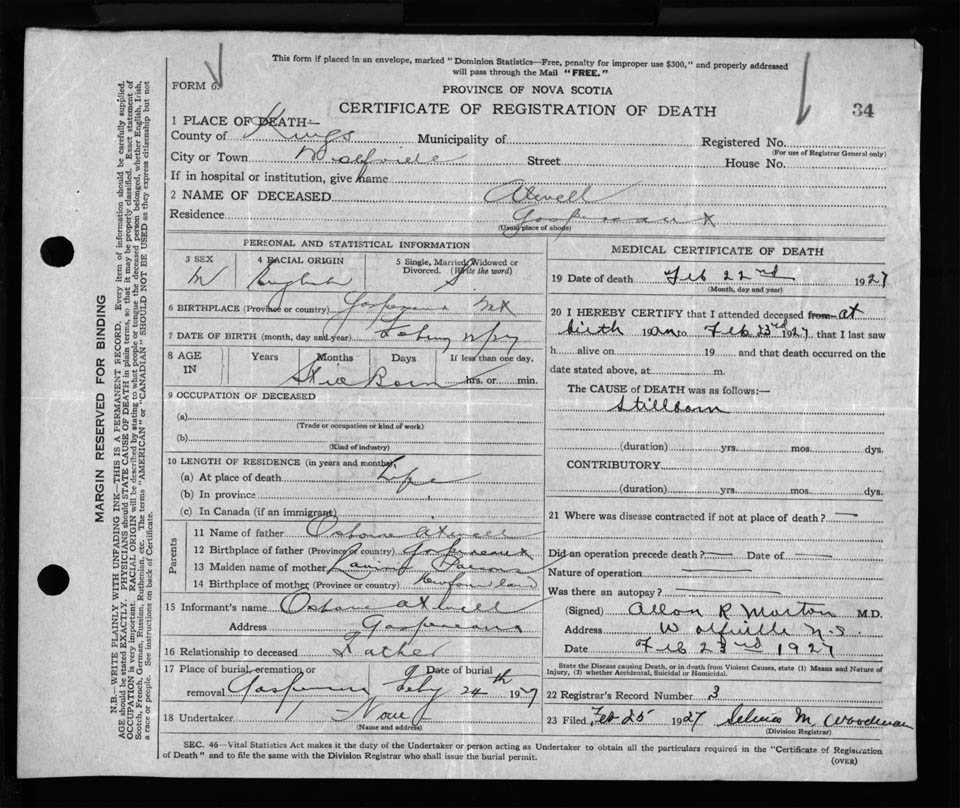 This form if placed in an envelope, marked "Dominion Statistics—Free, penalty for improper use $300," and properly addressed
will pass through the Mail "FREE."
FORM 6.
PROVINCE OF NOVA SCOTIA
CERTIFICATE OF REGISTRATION OF DEATH
34
1 PLACE OF DEATH—
County of Kings Municipality of Registered No.
(For use of Registrar General only)
City or Town Wolfville Street House No.
If in hospital or institution, give name
2 NAME OF DECEASED Atwell
Residence Gaspereaux
(Usual place of abode)
PERSONAL AND STATISTICAL INFORMATION
3 SEX 4 RACIAL ORIGIN 5 Single, Married, Widowed or
Divorced. (Write the word)
M English S
6 BIRTHPLACE (Province or country) Gaspereau
7 DATE OF BIRTH (month, day and year)
8 AGE IN Years Months Days If less than one day,
Still Born hrs. or min.
9 OCCUPATION OF DECEASED
(a)
(Trade or occupation or kind of work)
(b)
(Kind of industry)
10 LENGTH OF RESIDENCE (in years and months)
(a) At place of death Life
(b) In province
(c) In Canada (if an immigrant)
Parents
11 Name of father Osborne Atwell
12 Birthplace of father (Province or country) Gaspereaux
13 Maiden name of mother Parsons
14 Birthplace of mother (Province or country) Newfoundland
15 Informant's name Osborne Atwell
Address Gaspereaux
16 Relationship to deceased Father
17 Place of burial, cremation or removal Date of burial
Gaspereau Feby 24th 1927
18 Undertaker None
(Name and address)
MEDICAL CERTIFICATE OF DEATH
19 Date of death Feb 22nd 1927
(Month, day and year)
20 I HEREBY CERTIFY that I attended deceased from at
birth 19 on to Feb 23rd 1927, that I last saw
h alive on 19 and that death occurred on the
date stated above, at m.
The CAUSE of DEATH was as follows:—
Stillborn
(duration) yrs. mos. dys.
CONTRIBUTORY
(duration) yrs. mos. dys.
21 Where was disease contracted if not at place of death? —
Did an operation precede death? — Date of —
Nature of operation —
Was there an autopsy? —
(Signed) Allan R Morton M.D.
Address Wolfville N.S.
Date Feb 23rd 1927
State the Disease causing Death, or in death from Violent Causes, state (1) Means and Nature of
Injury, (2) whether Accidental, Suicidal or Homicidal.
22 Registrar's Record Number 3
23 Filed Feb 25 1927 M. Woodman
(Division Registrar)
SEC. 46—Vital Statistics Act makes it the duty of the Undertaker or person acting as Undertaker to obtain all the particulars required in the "Certificate of Registration
of Death" and to file the same with the Division Registrar who shall issue the burial permit.
(OVER)
MARGIN RESERVED FOR BINDING
N.B.—WRITE PLAINLY WITH UNFADING INK—THIS IS A PERMANENT RECORD. Every item of information should be carefully supplied.
AGE should be stated EXACTLY. PHYSICIANS should STATE CAUSE OF DEATH in plain terms, so that it may be properly classified. Exact statement of
OCCUPATION is very important. RACIAL ORIGIN will be described by stating to what people or tongue the deceased person belonged, whether English, Irish,
Scotch, French, German, Russian, Ruthenian, etc. The terms "AMERICAN" or "CANADIAN" SHOULD NOT BE USED as they express citizenship but not
a race or people. See instructions on back of Certificate.